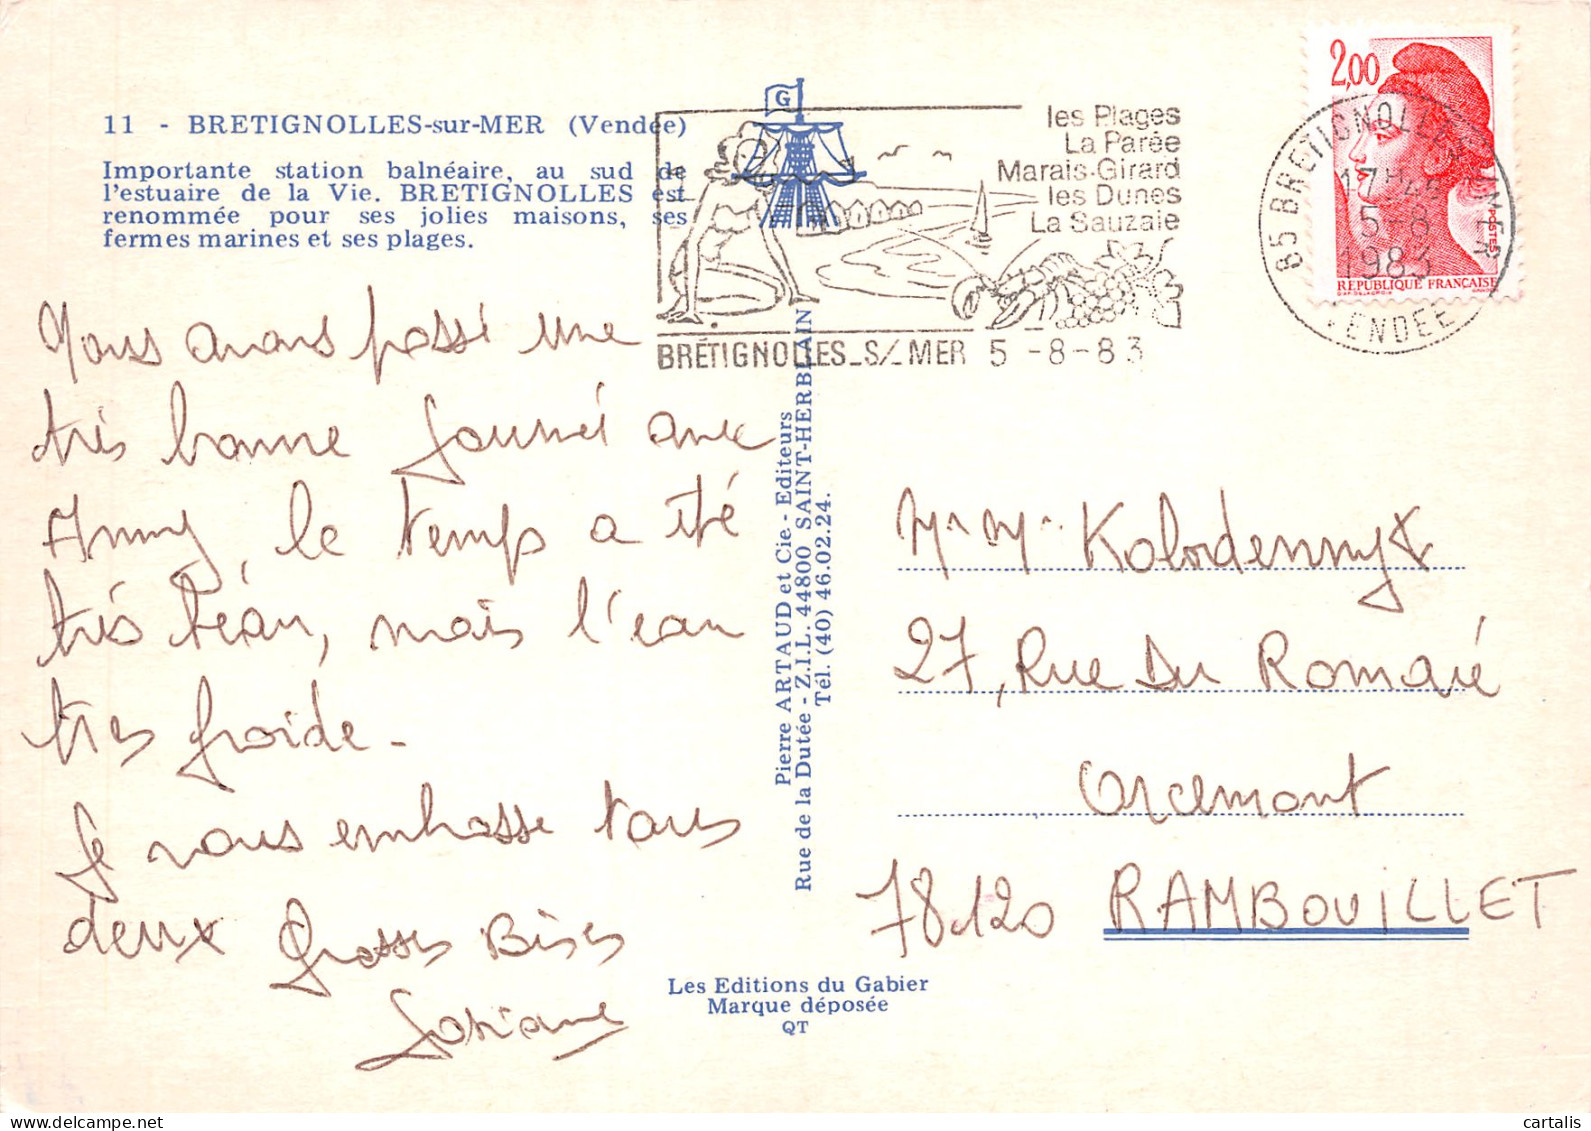 11 - BRETIGNOLLES-sur-MER (Vendée)
Importante station balnéaire, au sud de
l'estuaire de la Vie. BRETIGNOLLES est
renommée pour ses jolies maisons, ses
fermes marines et ses plages.
G
les Plages
La Parée
Marais-Girard
les Dunes
La Sauzaie
BRÉTIGNOLLES_S/_MER 5 -8-83
2,00
POSTES
REPUBLIQUE FRANÇAISE
85 BRETIGNOLLES S MER
17H
5-8
1983
VENDEE
Nous avons passé une
très bonne journée avec
Anny, le temps a été
très beau, mais l'eau
très froide -
Je vous embrasse tous
deux Grosses Bises
Josiane
Pierre ARTAUD et Cie - Editeurs
Rue de la Dutée - Z.I.L. 44800 SAINT-HERBLAIN
Tél. (40) 46.02.24.
Mr Mme
27, Rue Du Romaié
Orcemont
78120 RAMBOUILLET
Les Editions du Gabier
Marque déposée
QT
cartalis